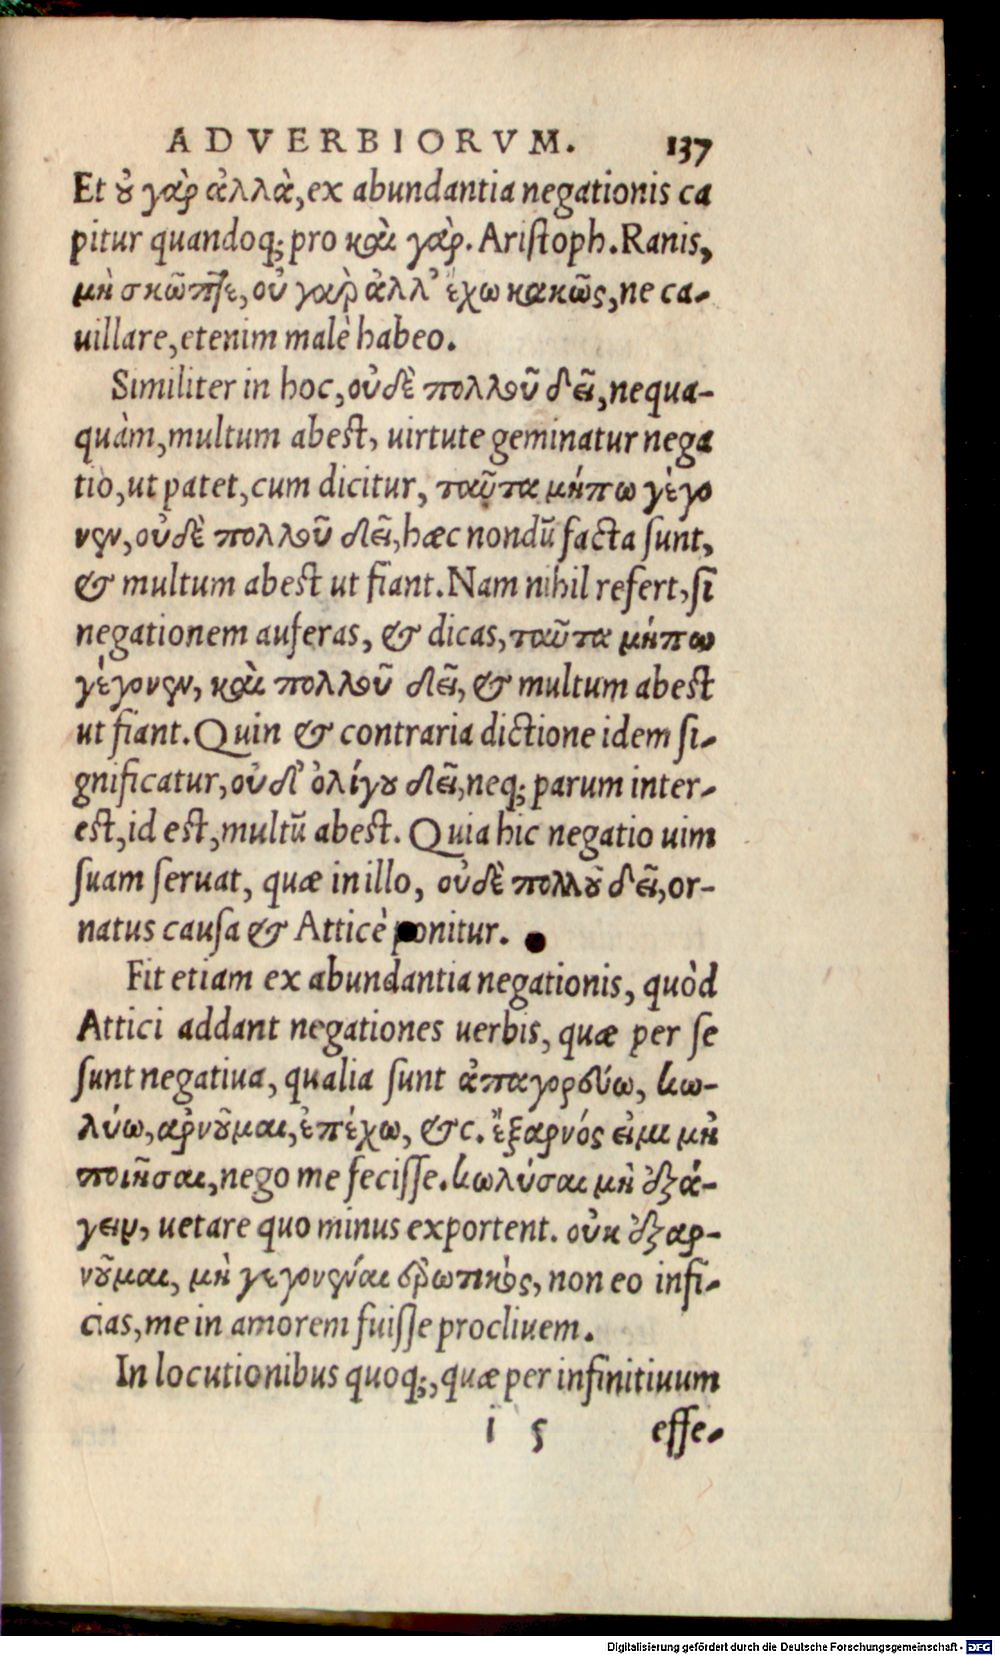 ADVERBIORVM. 137
Et ȣ γὰρ ἀλλὰ, ex abundantia negationis ca
pitur quandoq; pro καὶ γὰρ. Ariſtoph. Ranis,
μὴ σκῶπτε, οὐ γαὰρ ἀλλ᾽ ἔχω κακῶς, ne ca-
uillare, etenim malè habeo.
Similiter in hoc, οὐδὲ πολλοῦ δεῖ, nequa-
quàm, multum abest, uirtute geminatur nega
tio, ut patet, cum dicitur, ταῦτα μήπω γέγο
νεν, οὐδὲ πολλοῦ δεῖ, hæc nondũ facta ſunt,
& multum abest ut fiant. Nam nihil refert, ſi
negationem auferas, & dicas, ταῦτα μήπω
γέγονεν, καὶ πολλοῦ δεῖ, & multum abest
ut fiant. Quin & contraria dictione idem ſi-
gnificatur, οὐδ᾽ ὀλίγȣ δεῖ, neq; parum inter-
est, id est, multũ abest. Quia hic negatio uim
ſuam ſeruat, quæ in illo, οὐδὲ πολλȣ͂ δεῖ, or-
natus cauſa & Atticè ponitur.
Fit etiam ex abundantia negationis, quòd
Attici addant negationes uerbis, quæ per ſe
ſunt negatiua, qualia ſunt ἀπαγορεύω, κω-
λύω, αρνȣ͂μαι, ἐπέχω, &c. ἔξαρνός ειμι μὴ
ποιῆσαι, nego me feciſſe. κωλύσαι μὴ ἐξά-
γειν, uetare quo minus exportent. οὐκ ἐξαρ-
νȣ͂μαι, μὴ γεγονέναι ἐρωτικὸς, non eo infi-
cias, me in amorem fuiſſe procliuem.
In locutionibus quoq;, quæ per infinitiuum
i 5 eſſe.
Digitalisierung gefördert durch die Deutsche Forschungsgemeinschaft - DFG